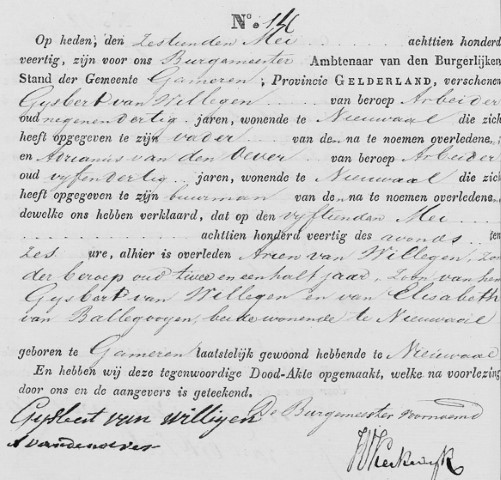 No. 14
Op heden, den zestienden Mei achttien honderd
veertig, zijn voor ons Burgemeester Ambtenaar van den Burgerlijken
Stand der Gemeente Gameren, Provincie GELDERLAND, verschenen
Gysbert van Willegen van beroep Arbeider
oud negenendertig jaren, wonende te Nieuwaal die zich
heeft opgegeven te zijn vader van de na te noemen overledene,
en Adrianus van den Oever van beroep Arbeider
oud vyfendertig jaren, wonende te Nieuwaal die zich
heeft opgegeven te zijn buurman van de na te noemen overledene
dewelke ons hebben verklaard, dat op den vyftienden Mei
achttien honderd veertig des avonds ten
zes ure, alhier is overleden Arien van Willegen, zon
der beroep oud twee en een half jaar, zoon van hen
Gysbert van Willegen en van Elisabeth
van Ballegooyen, beide wonende te Nieuwaal
geboren te Gameren laatstelijk gewoond hebbende te Nieuwaal
En hebben wij deze tegenwoordige Dood-Akte opgemaakt, welke na voorlezing
door ons en de aangevers is geteekend.
Gysbert van Willigen De Burgemeester voornoemd
A vandenoever